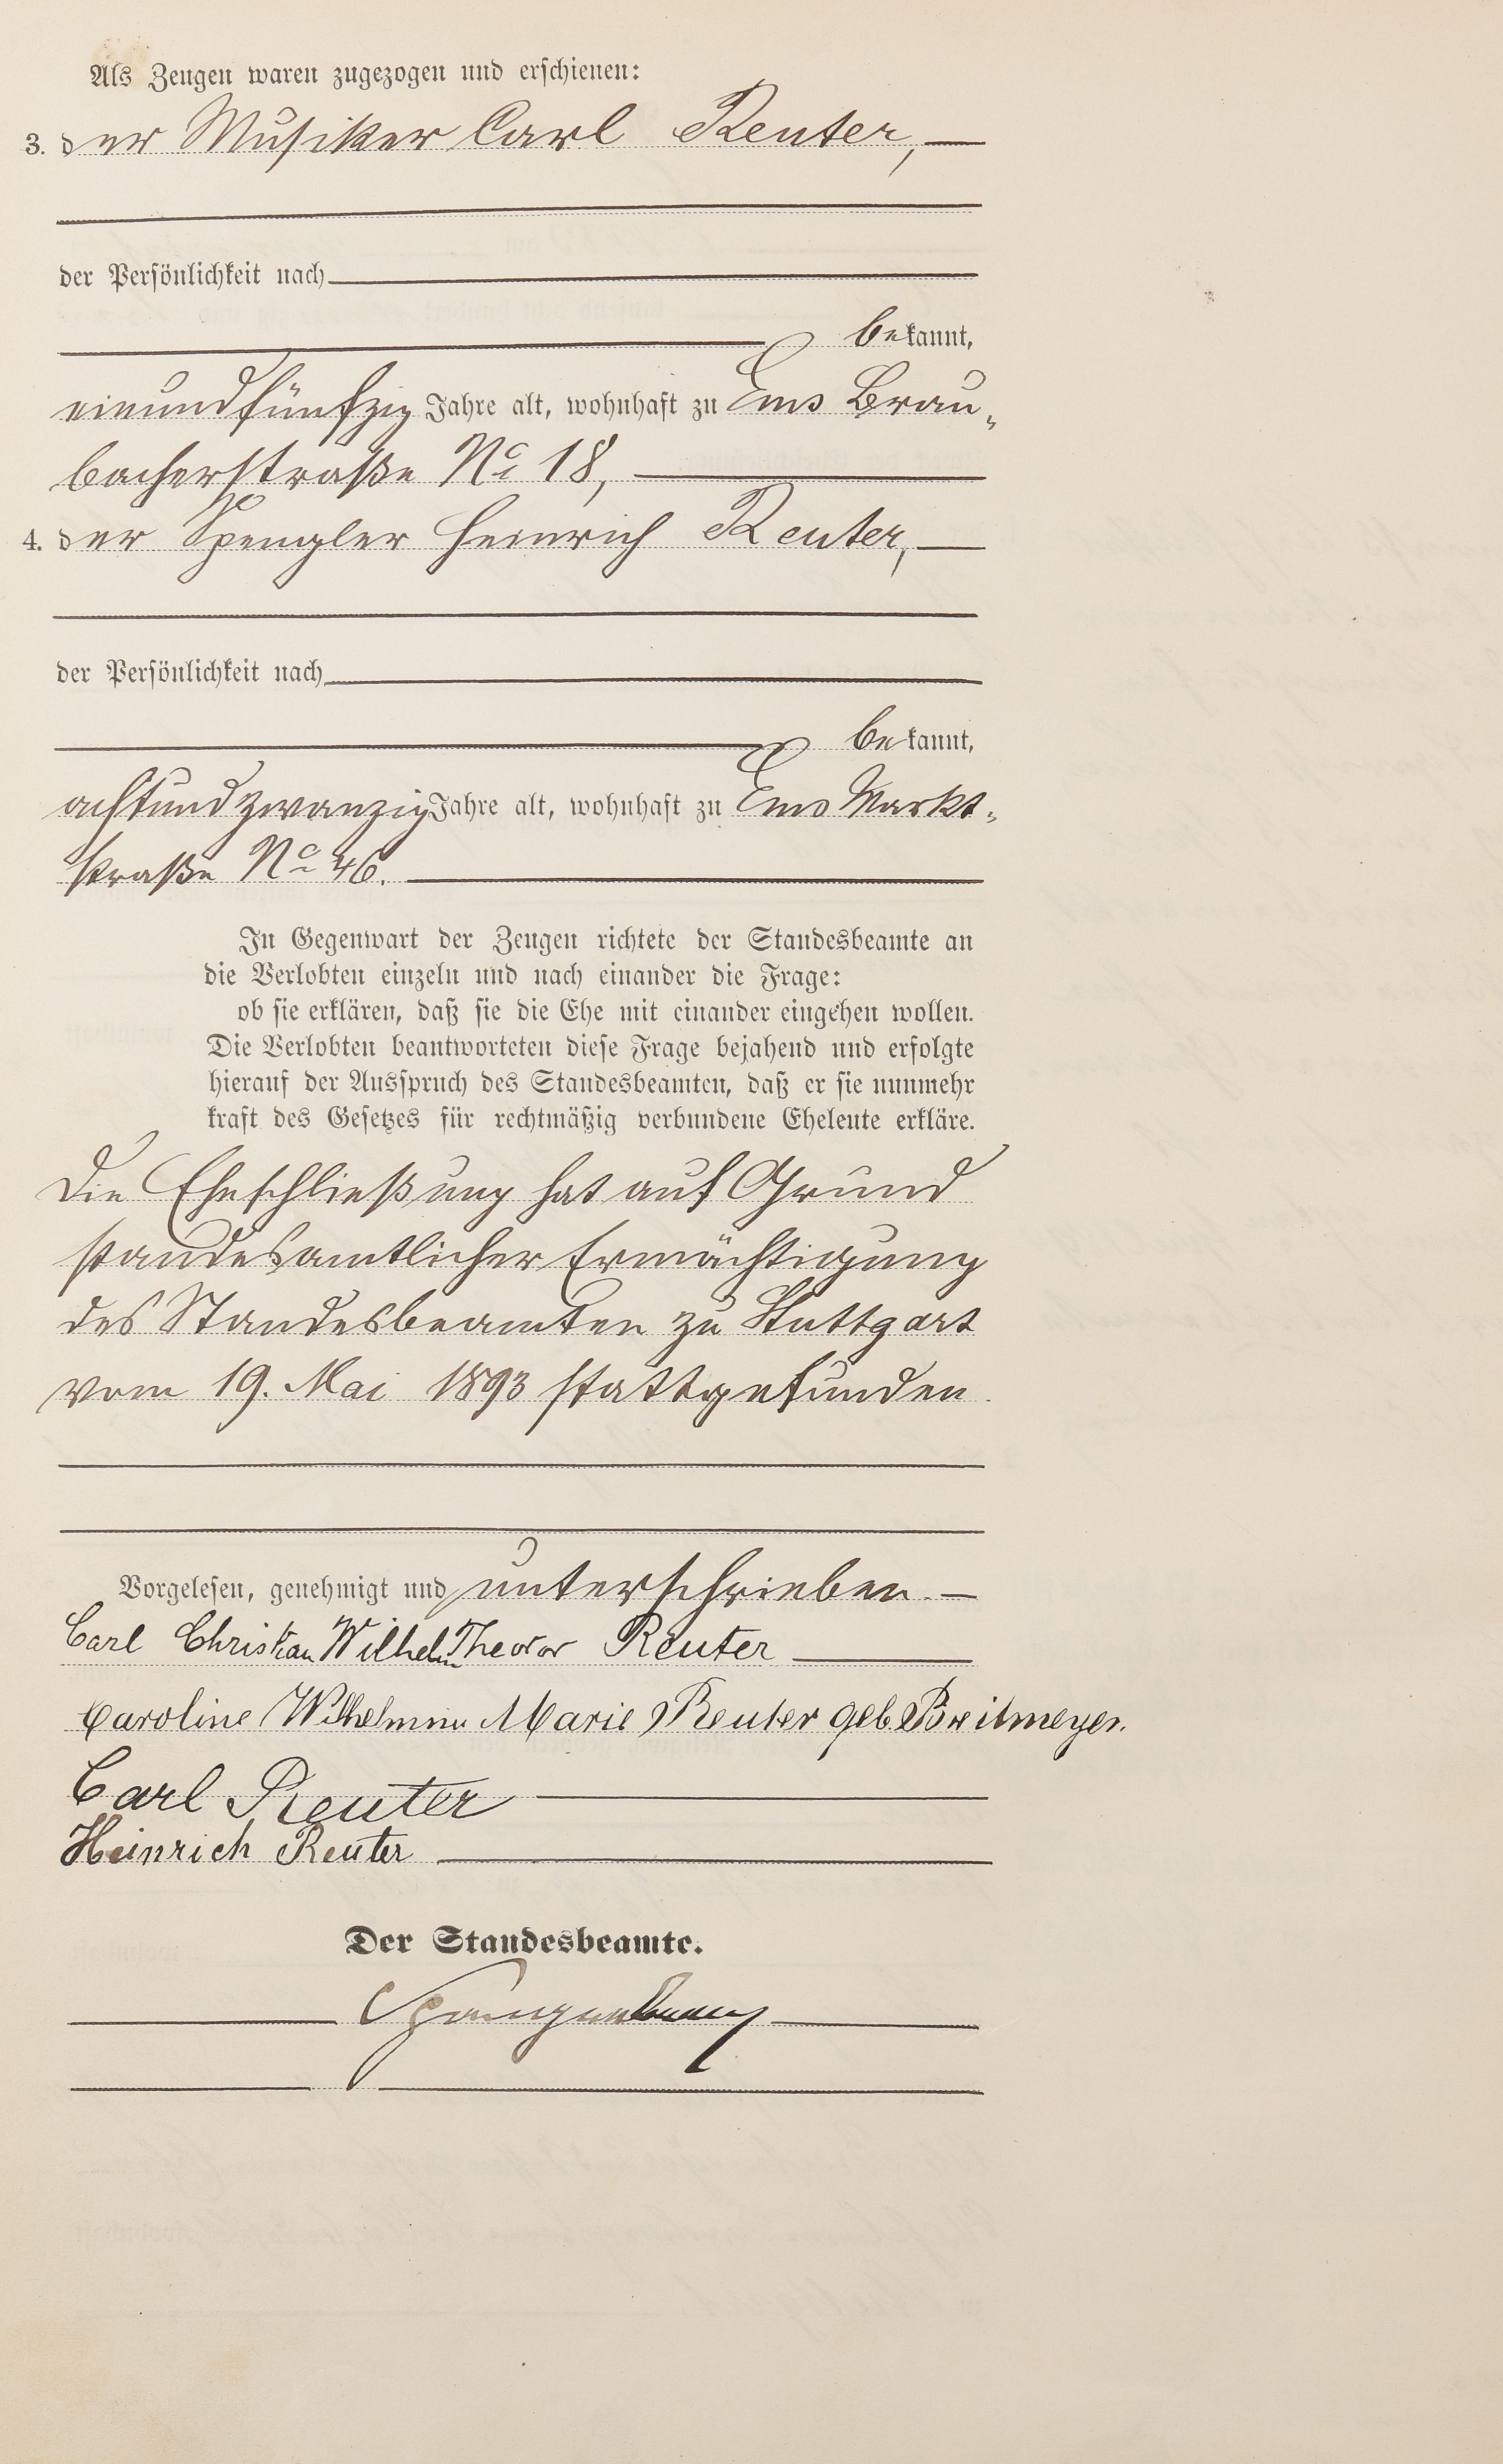 Als Zeugen waren zugezogen und erschienen:
3. der Musiker Carl Reuter,
der Persönlichkeit nach
bekannt,
einundfünfzig Jahre alt, wohnhaft zu Ems Brau-
bacherstraße No 18,
4. der Spengler Heinrich Reuter,
der Persönlichkeit nach
bekannt,
achtundzwanzig Jahre alt, wohnhaft zu Ems Markt-
straße No 46.
In Gegenwart der Zeugen richtete der Standesbeamte an
die Verlobten einzeln und nach einander die Frage:
ob sie erklären, daß sie die Ehe mit einander eingehen wollen.
Die Verlobten beantworteten diese Frage bejahend und erfolgte
hierauf der Ausspruch des Standesbeamten, daß er sie nunmehr
kraft des Gesetzes für rechtmäßig verbundene Eheleute erkläre.
Die Eheschließung hat auf Grund
standesamtlicher Ermächtigung
des Standesbeamten zu Stuttgart
vom 19. Mai 1893 stattgefunden.
Vorgelesen, genehmigt und unterschrieben.
Carl Christian Wilhelm Theodor Reuter
Caroline Wilhelmine Marie Reuter geb. Breitmeyer.
Carl Reuter
Heinrich Reuter
Der Standesbeamte.